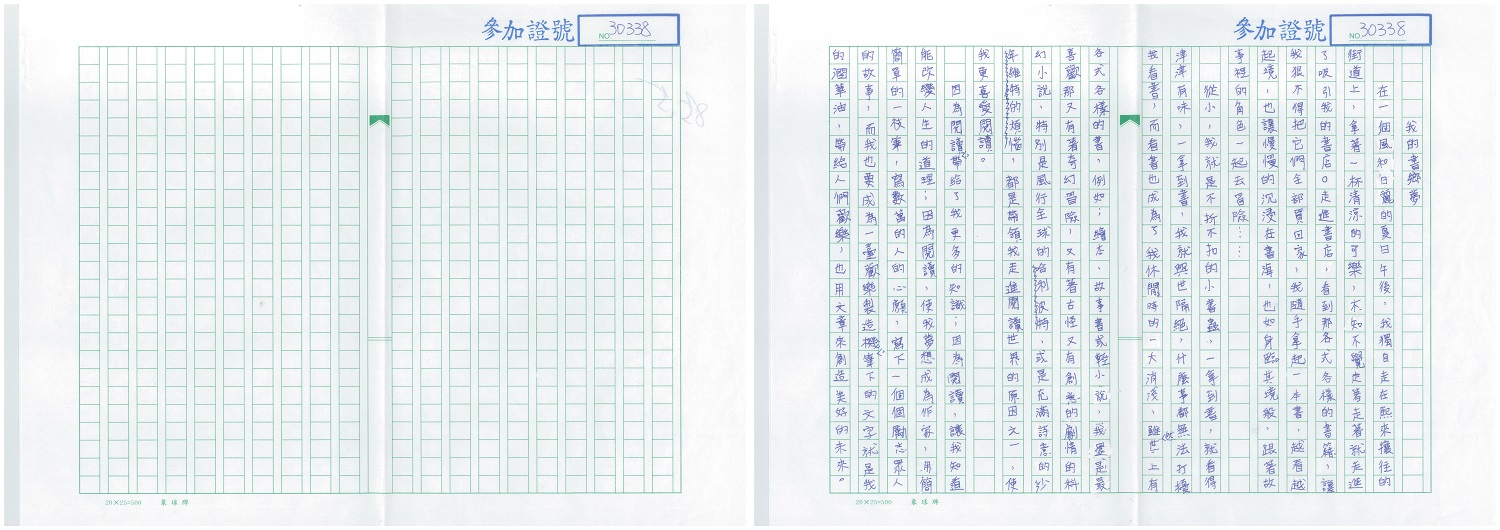 參加證號
NO. 30338
20×25=500 象球牌
參加證號
NO. 30338
我的書鄉夢
在一個風和日麗的夏日午後，我獨自走在熙來攘往的
街道上，拿著一杯清涼的可樂，不知不覺走著走著就走進
了吸引我的書店。走進書店，看到那各式各樣的書籍，讓
我恨不得把它們全部買回家，我隨手拿起一本書，越看越
起境，也讓慢慢的沉浸在書海，也如身臨其境般，跟著故
事裡的角色一起去冒險……
從小，我就是不折不扣的小書蟲，一拿到書，就看得
津津有味，一拿到書，我就與世隔絕，什麼事都無法打擾
我看書，而看書也成為了我休閒時的一大消遣，雖然世上有
各式各樣的書，例如：繪本、故事書或輕小說，我還是最
喜歡那又有著奇幻冒險，又有著古怪又有創意的劇情的科
幻小說，特別是風行全球的哈利波特，或是充滿詩意的少
年維特的煩惱，都是帶領我走進閱讀世界的原因之一，使
我更喜愛閱讀。
因為閱讀帶給了我更多的知識；因為閱讀，讓我知道
能改變人生的道理；因為閱讀，使我夢想成為作家，用簡
簡單的一枝筆，寫數萬的人的心願，寫下一個個勵志眾人
的故事，而我也要成為一臺歡樂製造機，筆下的文字就是我
的潤筆油，帶給人們歡樂，也用文章來創造美好的未來。
20×25=500 象球牌